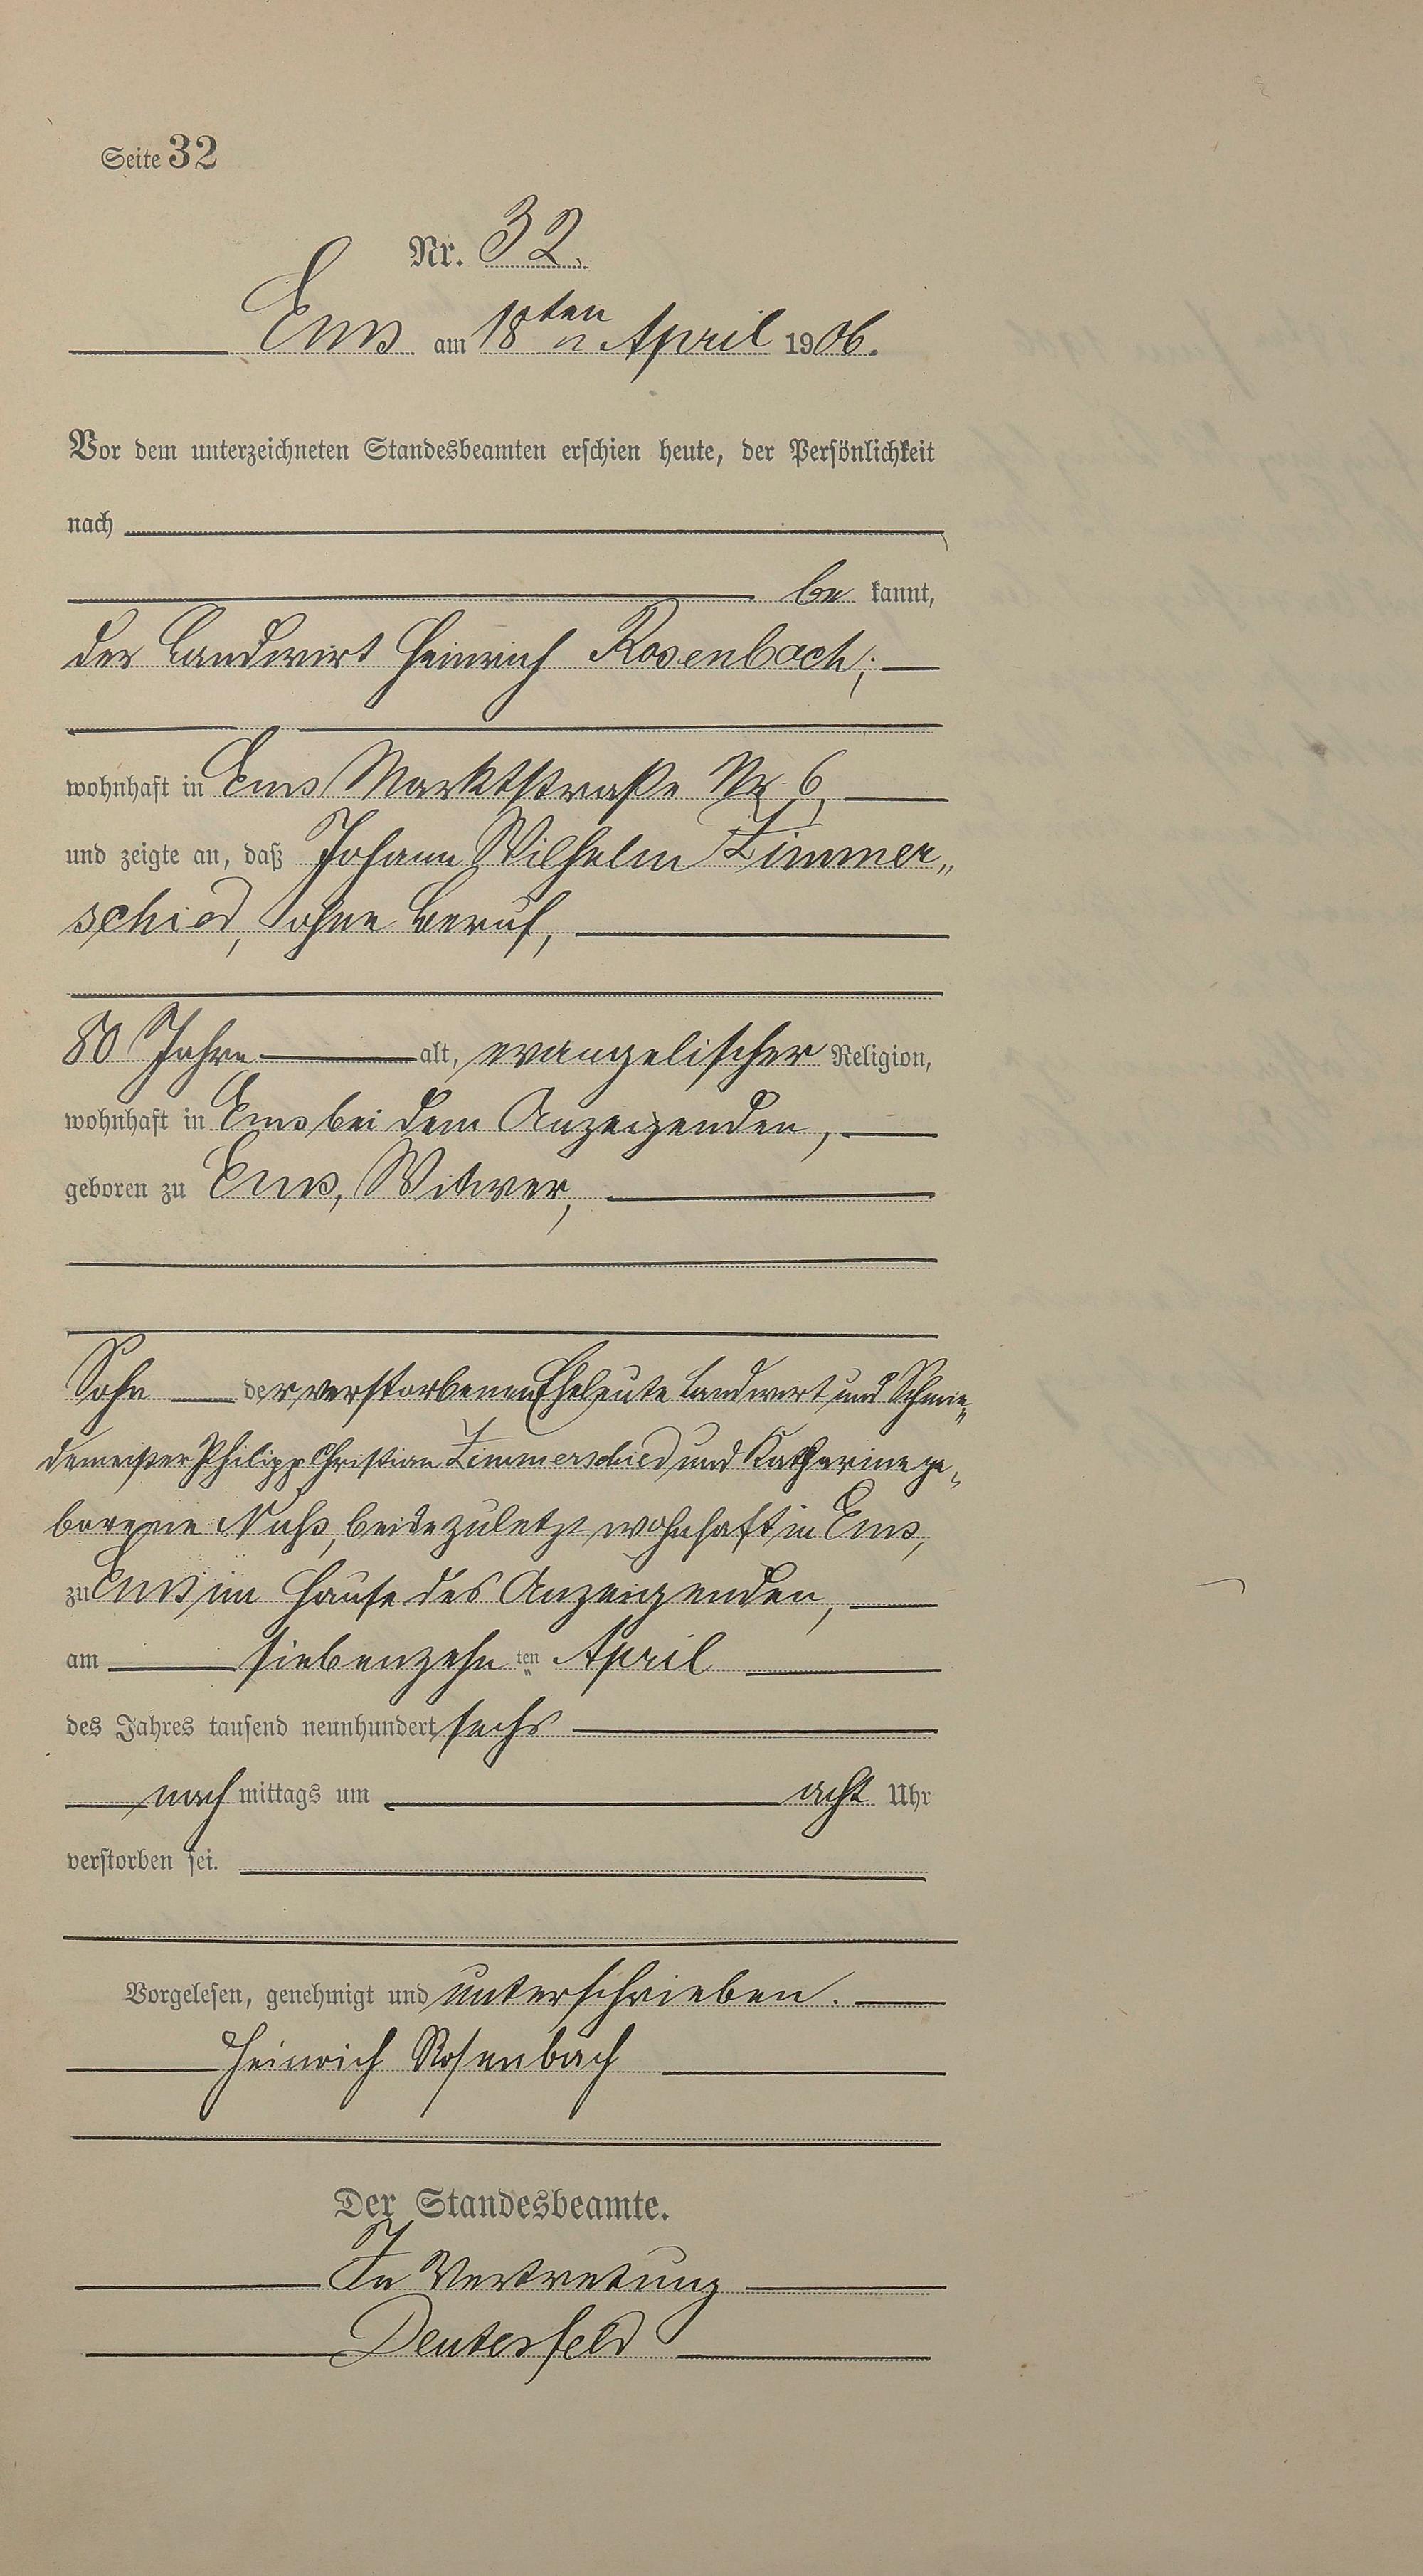 Seite 32
Nr. 32.
Ems am 18ten April 1906.
Vor dem unterzeichneten Standesbeamten erschien heute, der Persönlichkeit
nach
be kannt,
der Landwirt Heinrich Rosenbach,
wohnhaft in Ems Marktstraße Nr 6,
und zeigte an, daß Johann Wilhelm Zimmer„
schied, ohne Beruf,
80 Jahre alt, evangelischer Religion,
wohnhaft in Ems bei dem Anzeigenden,
geboren zu Ems, Witwer,
Sohn der verstorbenen Eheleute Landwirt und Schmie„
demeister Philipp Christian Zimmerschied und Katharine ge„
borene Nuß, beide zuletzt wohnhaft in Ems,
zu Ems im Hause des Anzeigenden,
am siebenzehn ten April
des Jahres tausend neunhundert sechs
nach mittags um acht Uhr
verstorben sei.
Vorgelesen, genehmigt und unterschrieben.
Heinrich Rosenbach
Der Standesbeamte.
In Vertretung
Deutesfeld